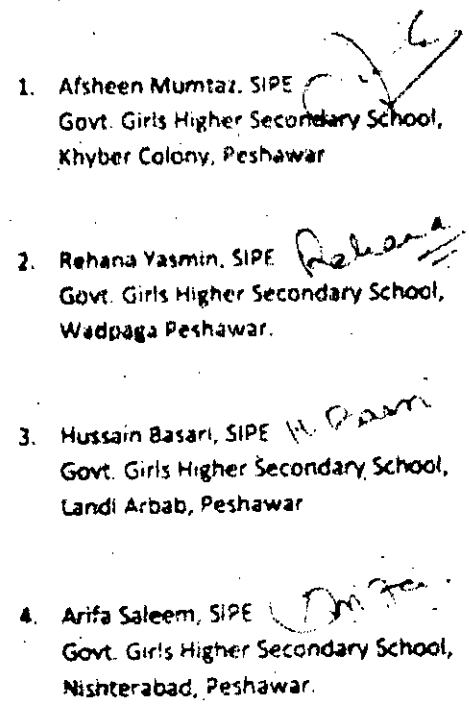 1. Afsheen Mumtaz, SIPE
Govt. Girls Higher Secondary School,
Khyber Colony, Peshawar
2. Rehana Yasmin, SIPE Rehana
Govt. Girls Higher Secondary School,
Wadpaga Peshawar.
3. Hussain Basari, SIPE H. Basri
Govt. Girls Higher Secondary School,
Landi Arbab, Peshawar
4. Arifa Saleem, SIPE
Govt. Girls Higher Secondary School,
Nishterabad, Peshawar.